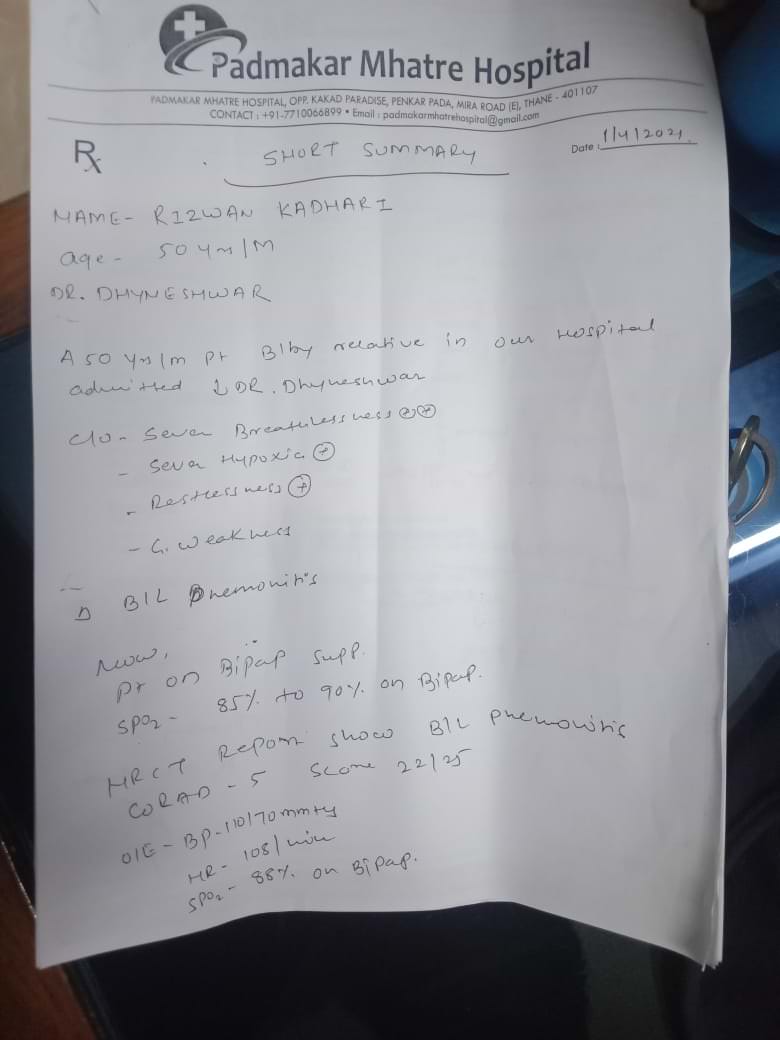 Padmakar Mhatre Hospital
PADMAKAR MHATRE HOSPITAL, OPP. KAKAD PARADISE, PENKAR PADA, MIRA ROAD (E), THANE - 401107
CONTACT : +91-7710066899 • Email : padmakarmhatrehospital@gmail.com
Rx
Date : 1/4/2021
SHORT SUMMARY
NAME- RIZWAN KADHARI
age - 50 yrs/M
DR. DHYNESHWAR
A 50 yrs/m Pt B/by relative in our Hospital
admitted ↓ DR. Dhyneshwar
c/o - Sever Breathlessness ⊕⊕
- Sever Hypoxic ⊕
- Restlessness ⊕
- G. weakness
D B/L Pnemonitis
Now,
Pt on Bipap Supp.
SPO2 - 85% to 90% on Bipap.
HRCT Report show B/L Pnemonitis
CORAD - 5 Score 22/25
O/E - BP - 110/70 mmHg
HR - 108/min
SPO2 - 88% on Bipap.